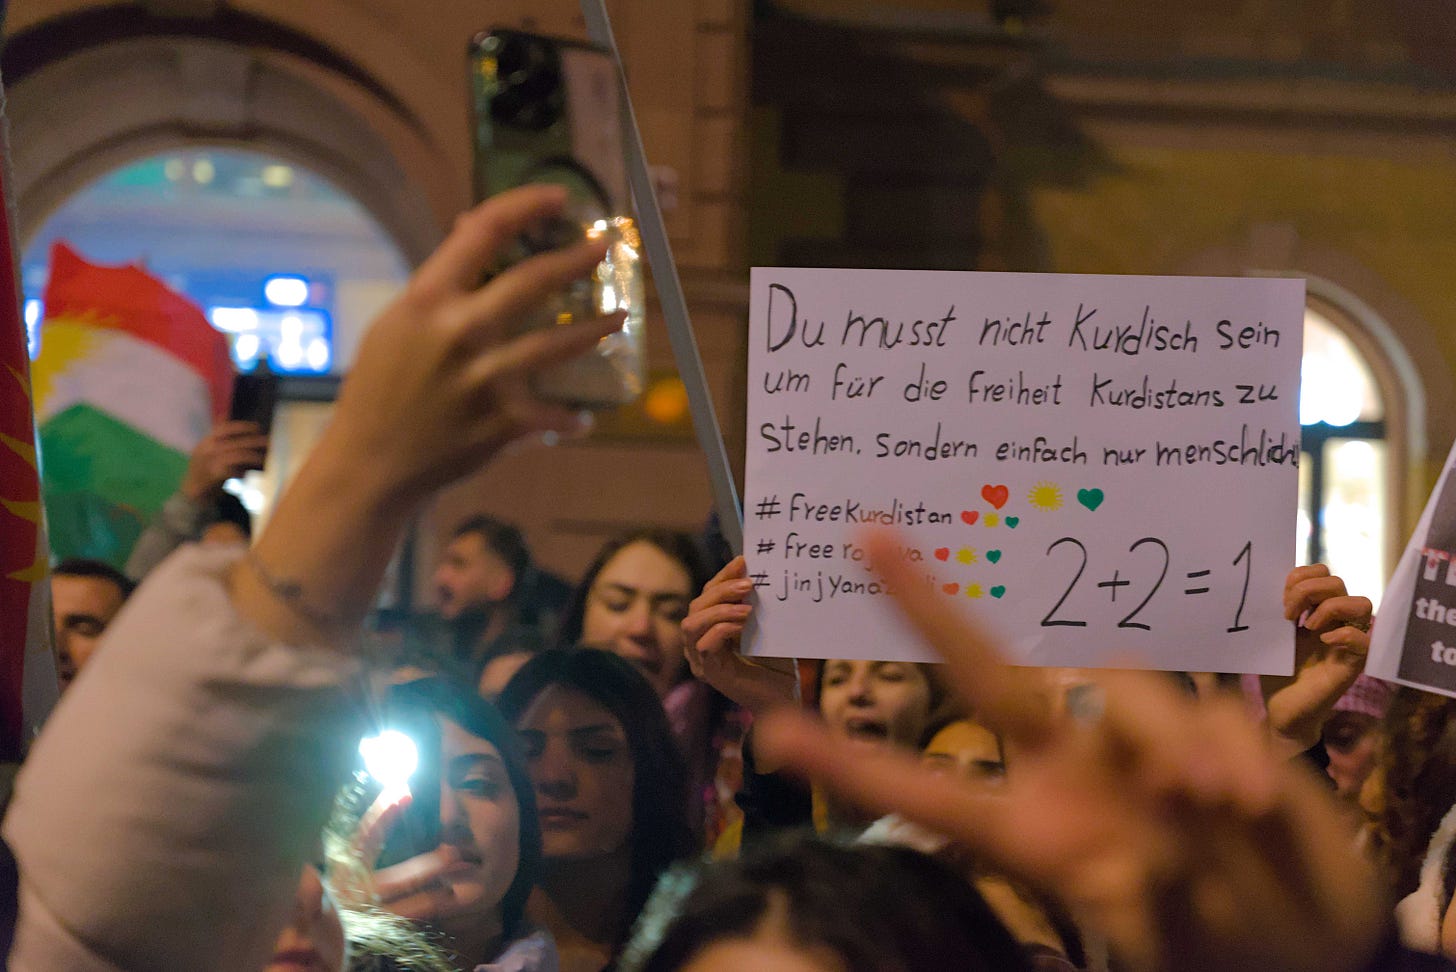 Du musst nicht Kurdisch sein
um für die Freiheit Kurdistans zu
stehen. sondern einfach nur menschlich!
# FreeKurdistan
# Free
# jinjyana
2+2=1
the
to